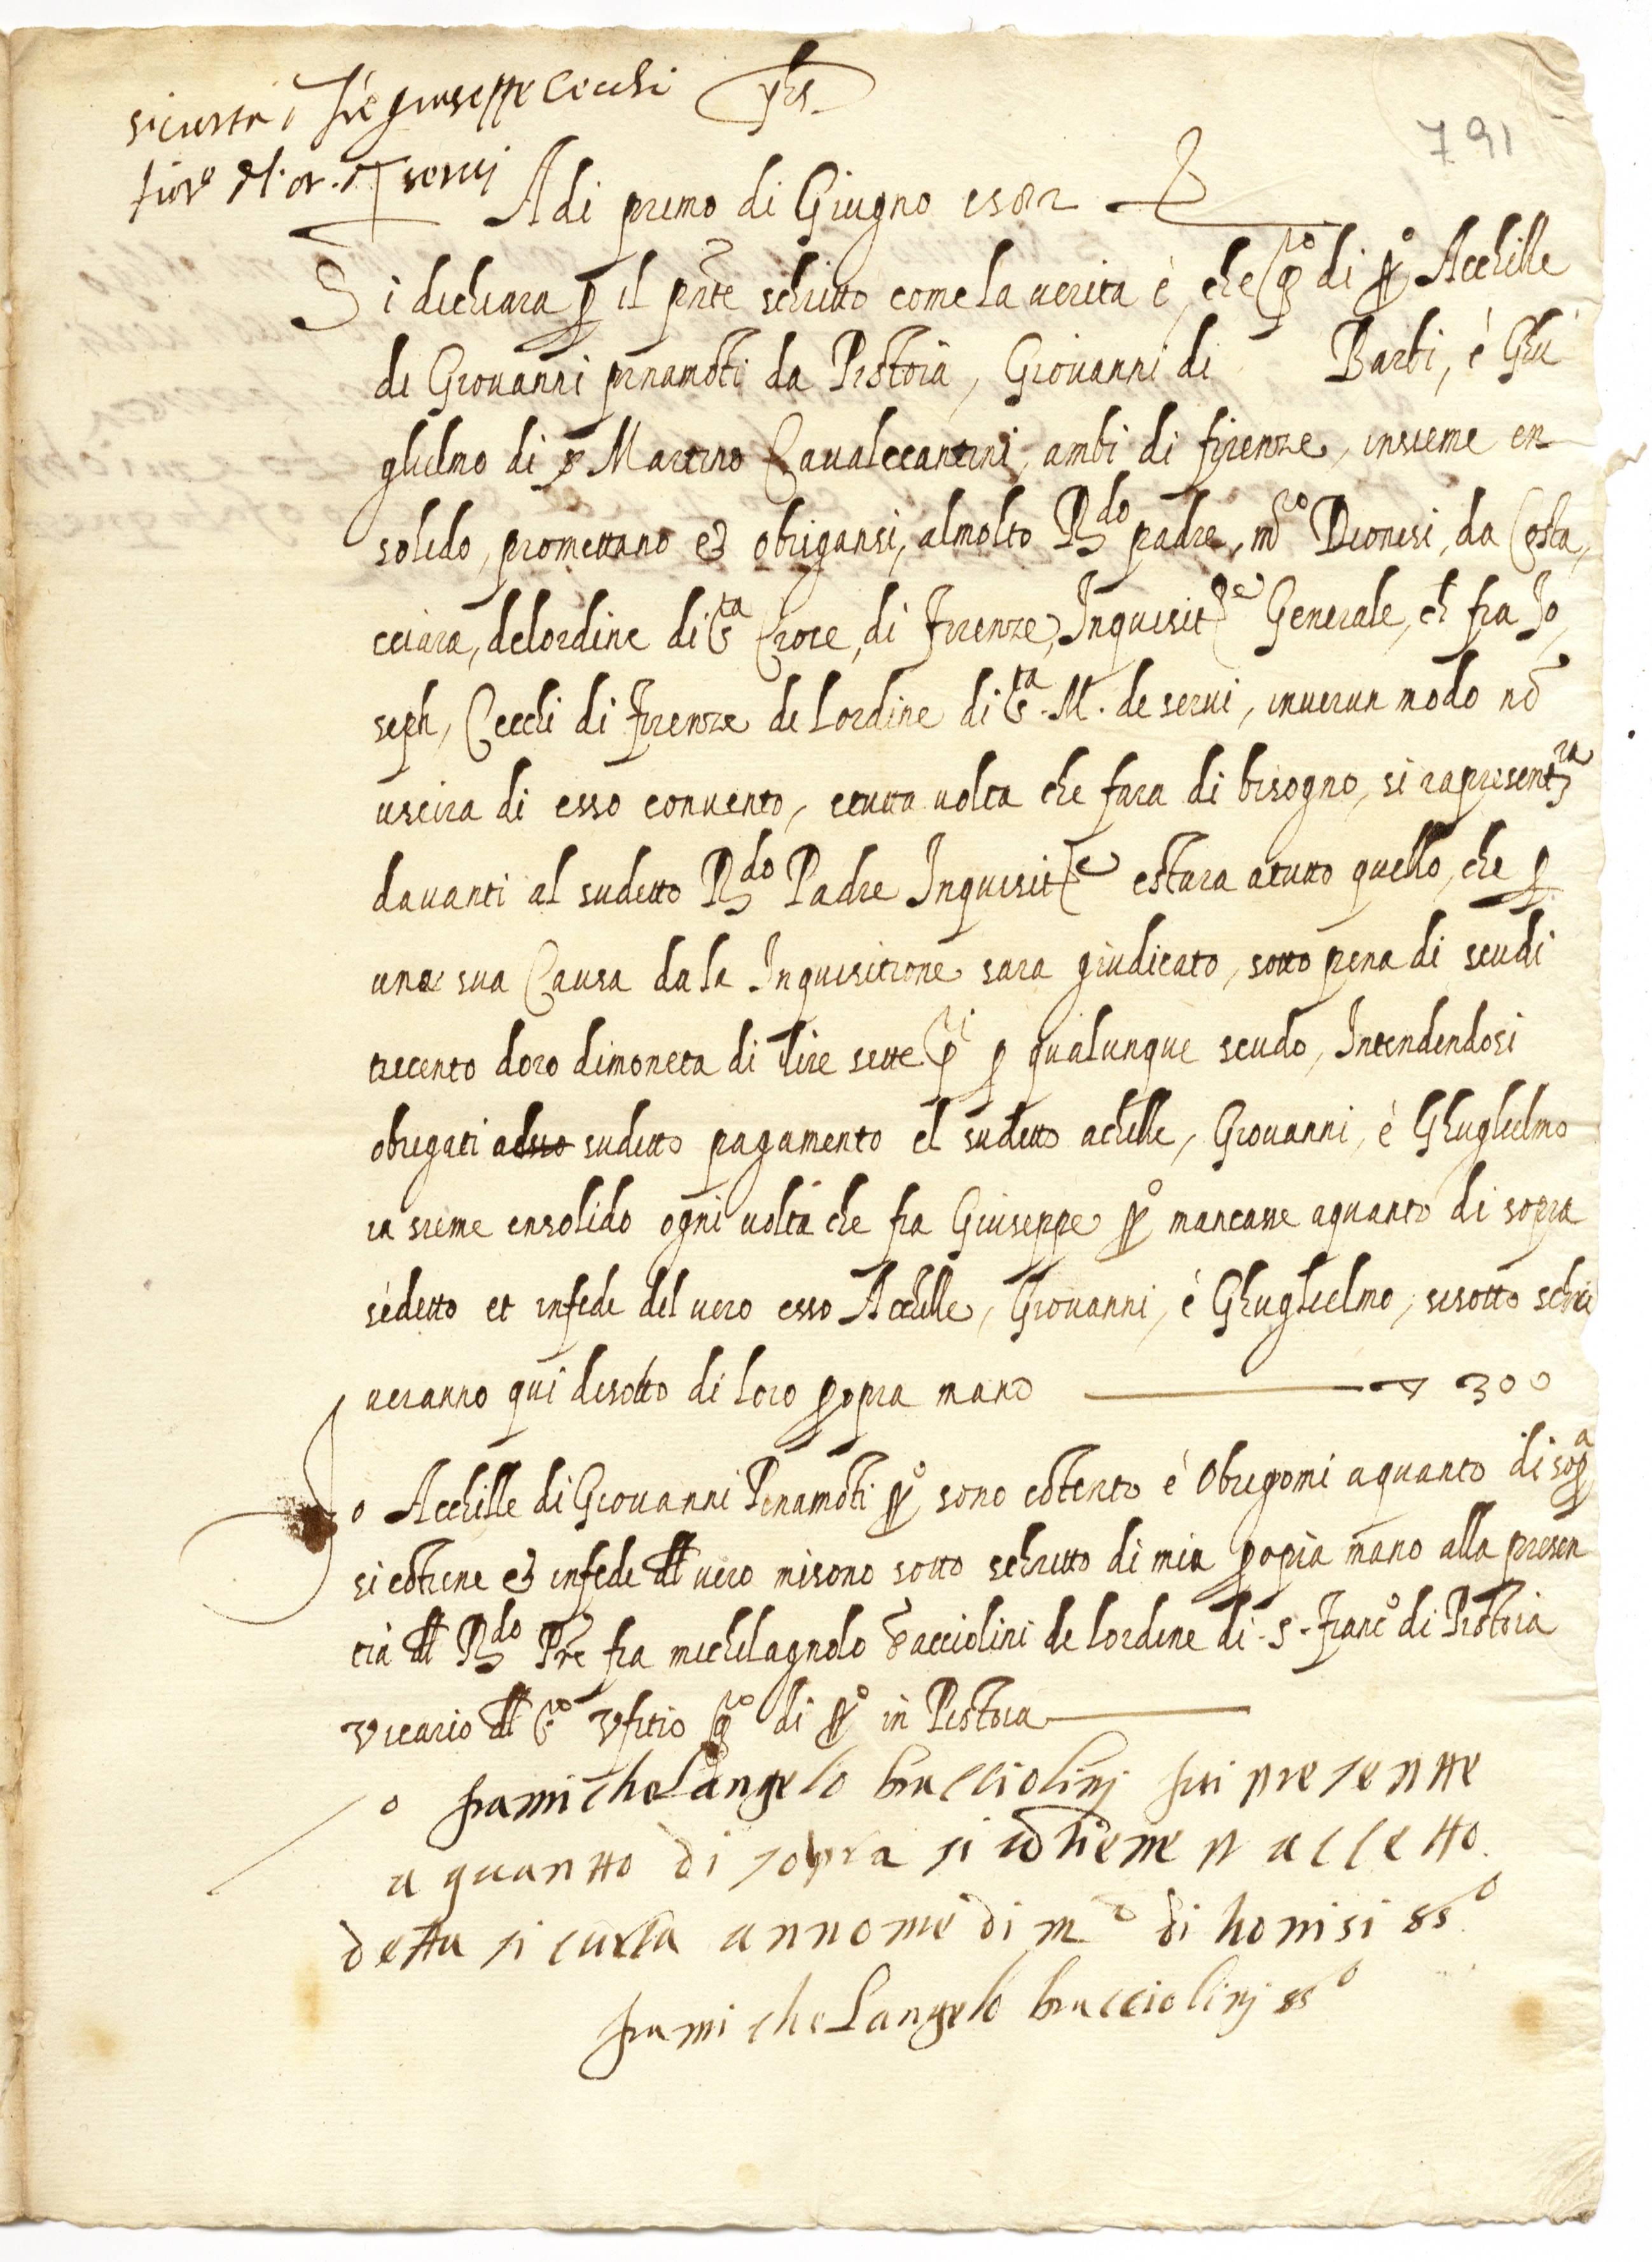 sicurtà, frè giuseppe Cecchi
yhs
791
fior.o d. or. d servi
Adi primo di Giugno 1582
Si dichiara p il pnte schritto come la verita è, che q.o di pp.o Acchille
di Giovanni pinamōti da Pistoia, Giovanni di Barbi, è Ghu
glielmo di Martino Cavalccantini, ambi di firenze, insieme en
solido, promettano et obrigansi, almolto R.do padre, m.ro Dionisi, da Costa,
cciara, delordine di S.ta Croce, di Firenze, Inquisit.re Generale, ch fra Io,
seph, Cecchi di Firenze de lordine di S.ta M. de servi, inverun modo nō
uscira di esso convento, etutta volta che fara di bisogno, si rapresent.ra
davanti al sudetto R.do Padre Inquisit.re estara atutto quello, che p
una sua Causa da la Inquisitione sara giudicato, sotto pena di scudi
trecento doro dimoneta di lire sette p.i p qualunque scudo, Intendendosi
obrigati sudetto pagamento el sudetto achille, Giovanni, è Ghuglielmo
in sieme ensolido ogni volta che fra Giuseppe pp.o mancasse aquanto di sopra
sèdetto et infede del vero esso Acchille, Giovanni, è Ghuglielmo, sisotto schri
veranno qui disotto di loro popria mano 300
Io Acchille di Giovanni Pinamōti pp.o sono cōtento è Obrigomi aquanto di sop.a
si cōtiene et infede dll vero misono sotto schritto di mia popria mano alla presen
tia dll R.do Pre fra michelagnolo Bacciolini de lordine di S. Franc.o di Pistoia
Vicario dll S.to Vfitio q.o di pp.o in Pistoia
Io fra michelangelo bracciolinj fui presentte
a quantto di sopra si cōtiene et accetto
detta sicurta annome di m.o dihonisi ss.o
fra michelangelo bracciolinj ss.o